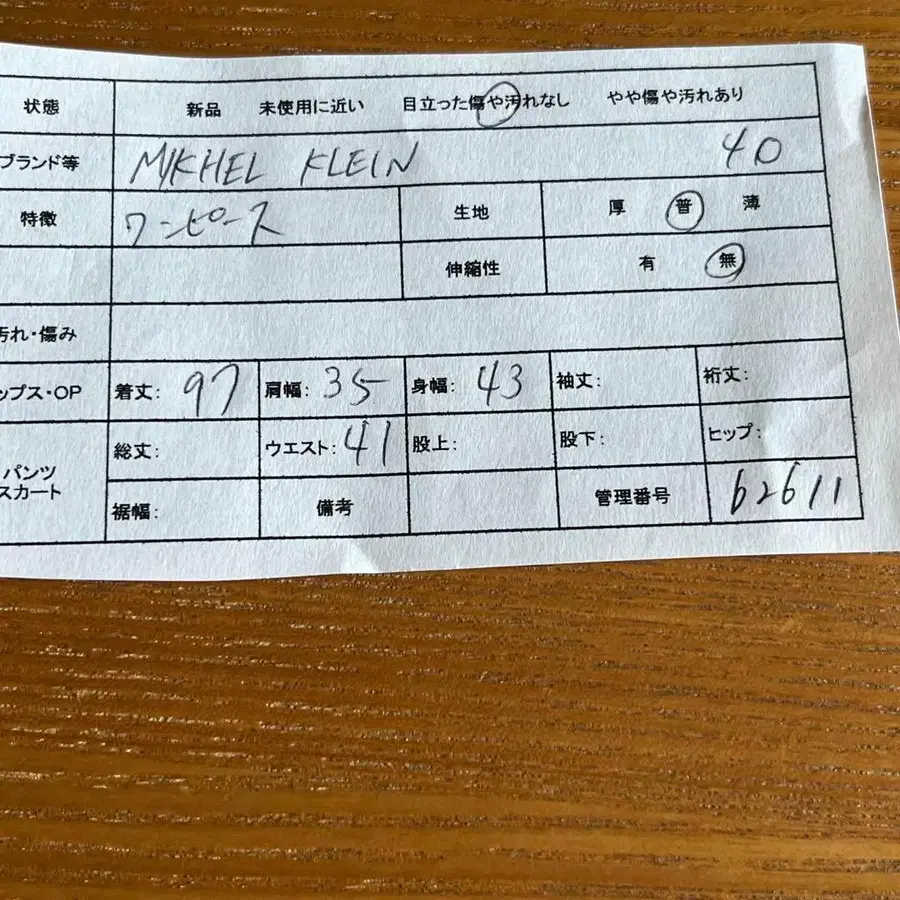 状態 新品 未使用に近い 目立った傷や汚れなし やや傷や汚れあり
ブランド等 MIKHEL KLEIN 40
特徴 ワンピース 生地 厚 普 薄
伸縮性 有 無
汚れ・傷み
ップス・OP 着丈: 97 肩幅: 35 身幅: 43 袖丈: 裄丈:
パンツ
スカート
総丈: ウエスト: 41 股上: 股下: ヒップ:
裾幅: 備考 管理番号 62611